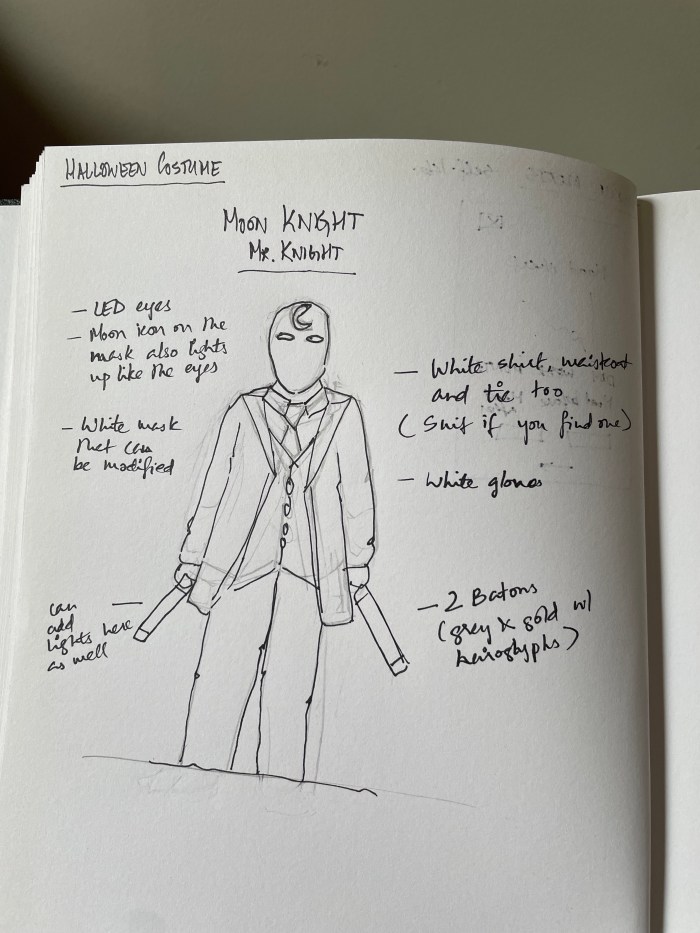 HALLOWEEN COSTUME
MOON KNIGHT
MR. KNIGHT
- LED eyes
- Moon icon on the
mask also lights
up like the eyes
- White mask
that can
be modified
- White shirt, waistcoat
and tie too
(Suit if you find one)
- White gloves
can
add
lights here
as well
- 2 Batons
(grey x gold w/
heiroglyphs)